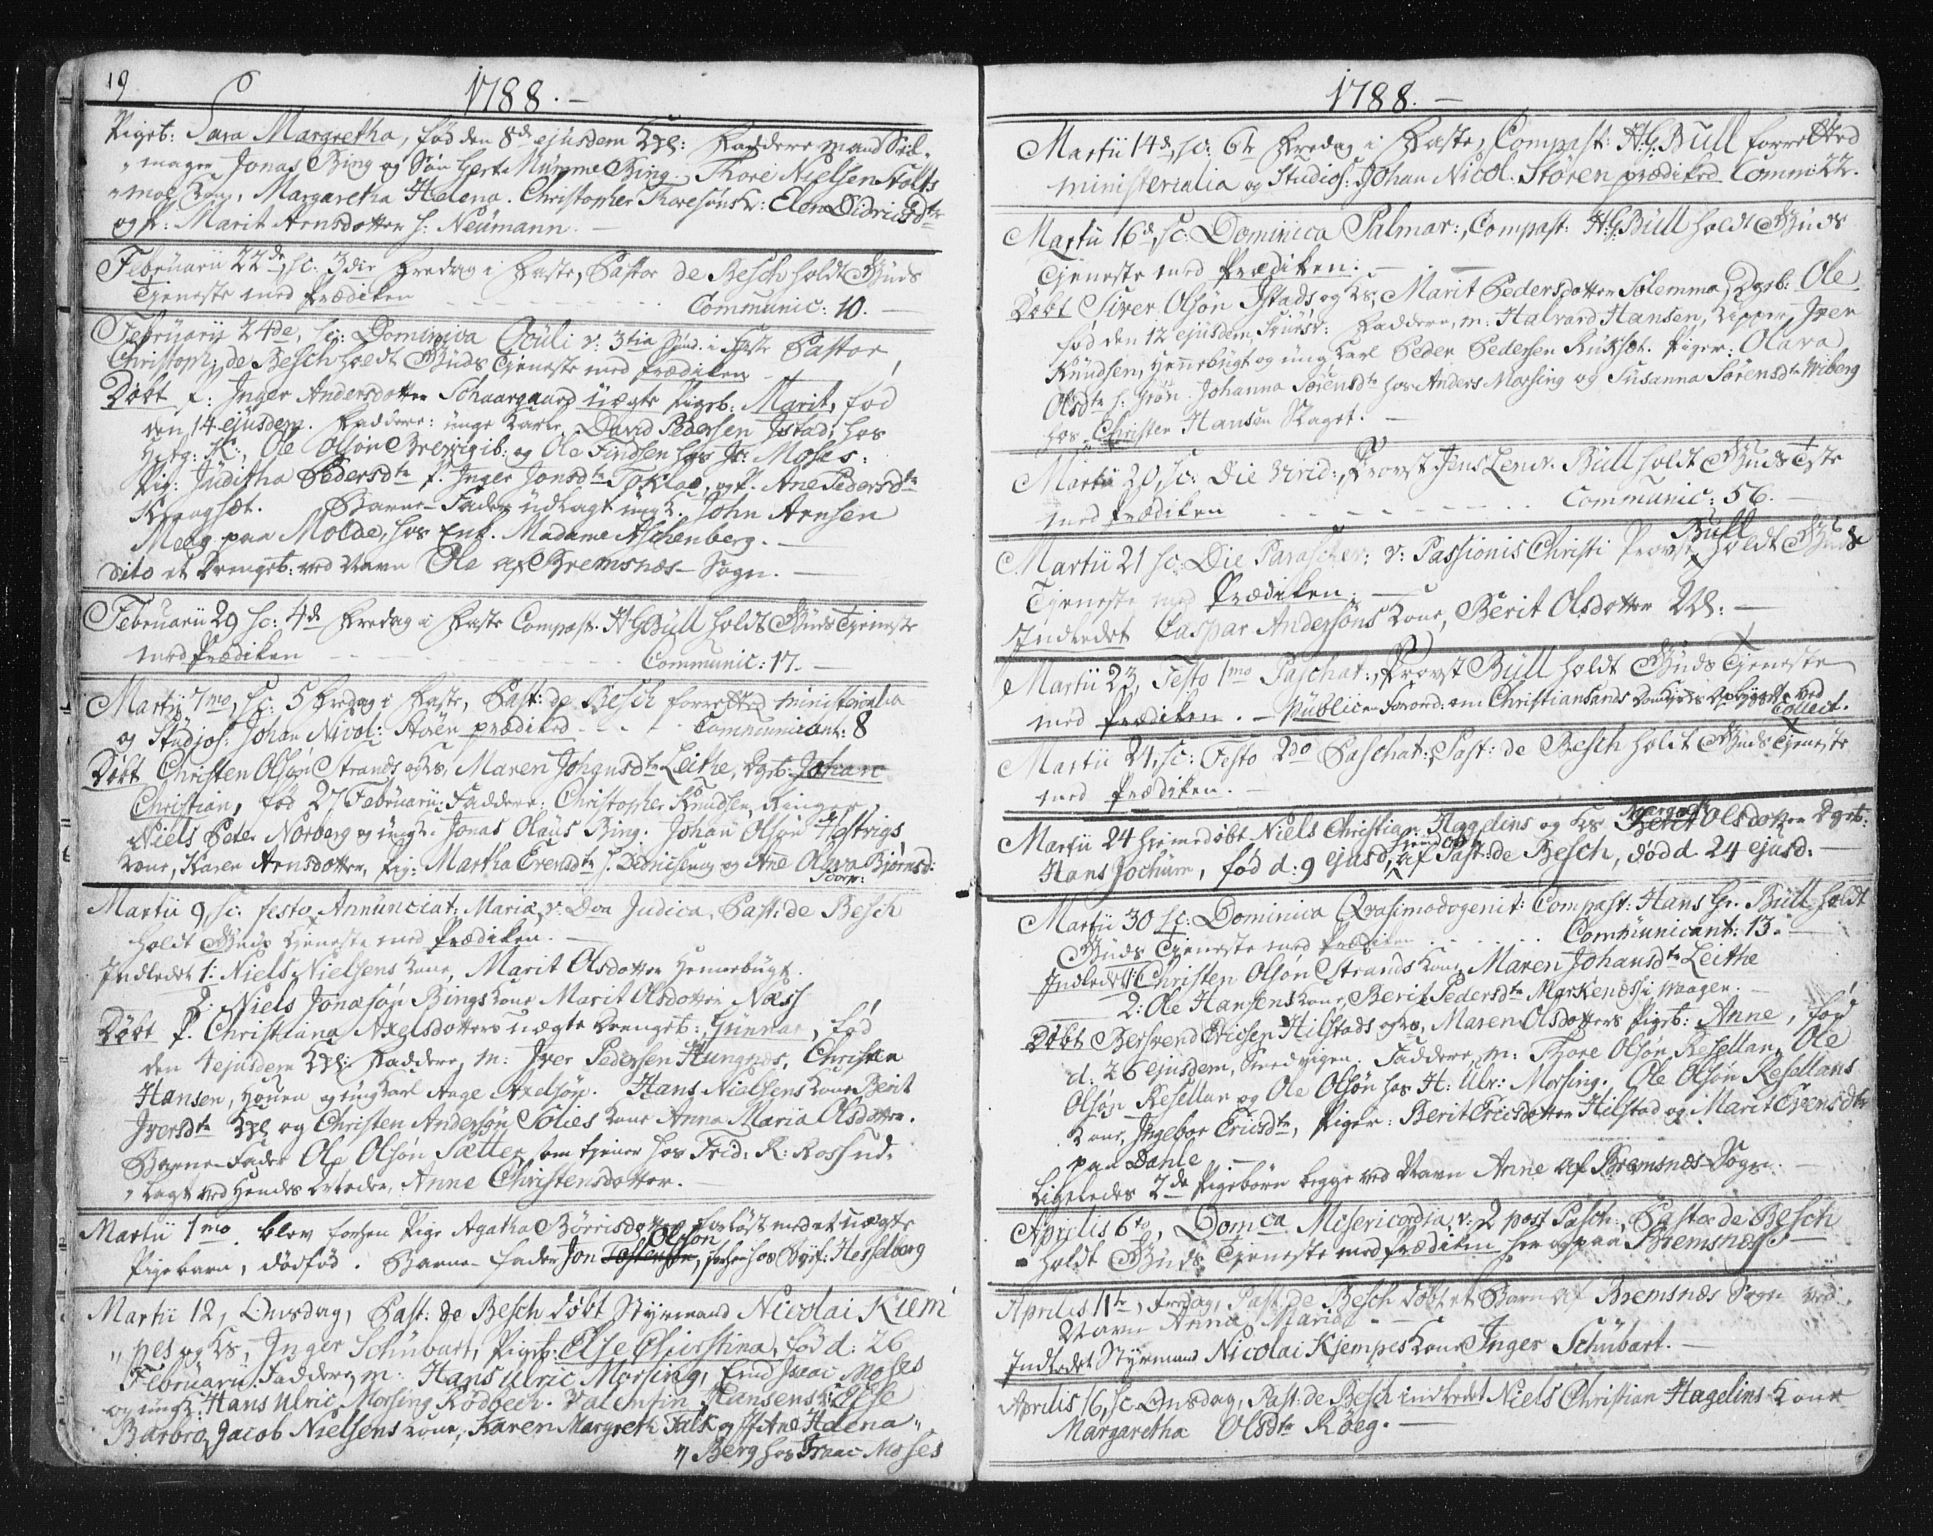 19
1788. —
Pigeb: Sara Margretha, fød den 8de ejusdem Faddere mand Seil-
mager Jonas Bing og Søn Mumme Bing. Thore Nielsen Stolts
Kone, Margaretha Helena. Christopher Thoresøns K: Elen Didrichsdtr
og P: Marit Arnsdotter h: Neumann. —
Februarii 22de, sc: 3die Fredag i Faste, Pastor de Besch holdt Guds
Tjeneste med Prædiken Communic: 10. —
Februarii 24de, sc: Dominica Oculi v: 3tia Sønd. i Faste Pastor
Christoph: de Besch holdt Guds Tjeneste med Prædiken
Døbt P: Inger Andersdotter Schaargaard uægte Pigeb: Marit, fød
den 14 ejusdem. Faddere: unge Karle, David Pedersen Istad, hos
Ole Olsøn og Ole Findsen hos Is: Moses:
Pig: Juditha Pedersdtr P. Inger Jonsdtr og P. Ane Pedersdtr
Barne-Fader udlagt ungk. John Arnsen
Meeg paa Molde, hos Enk. Madame Aschenberg. —
Dito et Drengeb: ved Navn Ole af Bremsnæs-Sogn. —
Februarii 29 sc: 4de Fredag i Faste Compast. H G Bull holdt Guds Tjeneste
med Prædiken Communic: 17. —
Martii 7mo, sc: 5 Fredag i Faste, Past: de Besch forretted ministerialia
og Studios: Johan Nicol: Støren prædiked Communicant: 8
Døbt Christen Olsøn Strands og Ks, Maren Johansdtr Leithe, Dgeb: Johan
Christian, fød 27 Februarii: Faddere: Christopher Knudsen, Ringer,
Niels Peter Norberg og ungk: Jonas Olaus Bing. Johan Olsøn Østrigs
Kone, Karen Arnsdotter, Pig: Martha Evensdtr h. og Ane Olava Bjørnsd:
Martii 9, sc: festo Annunciat: Mariæ v: Dca Judica, Past: de Besch
holdt Guds Tjeneste med Prædiken. —
Indledet 1: Niels Nielsens Kone, Marit Olsdotter Hennebugt.
2: Niels Jonasøn Bings Kone Marit Olsdotter Næss
Døbt P. Christiana Axelsdotters uægte Drengeb: Gunnar, fød
den 4 ejusdem Faddere, m: Iver Pedersen Hungnæs, Christen
Hansen, Houen og ungkarl Aage Axelsøn. Hans Nielsens Kone Berit
Iversdtr og Christen Andersøn Solies Kone Anna Maria Olsdotter.
Barne-Fader Ole Olsøn Sætter, som tjener hos Frid: R: Ross ud-
lagt ved Hendes Anne Christensdotter. —
Martii 1mo. blev forhen Pige Agatha Børrisdotter forløst med et uægte
Pigebarn, dødfød. Barne-fader Jon Olsøn hos Hesselberg
Martii 12, Onsdag, Past: de Besch døbt Styrmand Nicolai Kiem-
pes og Ks, Inger Schubart, Pigeb: Else Christina, fød d: 26
Februarii. Faddere, m: Hans Ulric Morsing, Isaac Moses
og ungk: Hans Ulric Morsing Rødbech. Valentin Hansens K: Else
Barbro, Jacob Nielsens Kone, Karen Margreth Falk og Ane Helena
Berg hos Isaac Moses
1788. —
Martii 14de, sc: 6te Fredag i Faste, Compast: H. G. Bull forrettet
ministerialia og Studios: Johan Nicol. Støren prædiked Comm: 22.
Martii 16de, sc: Dominica Palmar:, Compast: H. G. Bull holdt Guds
Tjeneste med Prædiken. —
Døbt Siver Olsøn Istads og Ks, Marit Pedersdotter Solemma, Dgeb: Ole
fød den 12 ejusdem Faddere, m: Halvard Hansen, Iver
Knudsen, Hennebugt og ung Karl Peder Pedersen Piger: Olava
Olsdtr h: Johanna Sørensdtr hos Anders Morsing og Susanna Sørensdtr Wiberg
hos Christen Hansen Staget. —
Martii 20, sc: Die Virid:, Provst Jens Lenv. Bull holdt Guds Tjste
med Prædiken Communic: 56. —
Martii 21 sc: Die Parascev: v: Passionis Christi Provst Bull holdt Guds
Tjeneste med Prædiken. —
Indledet Caspar Andersøns Kone, Berit Olsdotter —
Martii 23, Festo 1mo Paschat:, Provst Bull holdt Guds Tjeneste
med Prædiken. — Public: Forord: om Christiansands Domkirkes Opbyggelse ved
Collect.
Martii 24, sc: Festo 2do Paschat:, Past: de Besch holdt Guds Tjeneste
med Prædiken. —
Martii 24 hjemedøbt Niels Christian Hagelins og Ks Margareth Olsdotter Dgeb:
Hans Jochum, fød d: 9 ejusd, af Past: de Besch, død d 24 ejusd. —
Martii 30 sc: Dominica Qvasimodogenit: Compast: Hans G. Bull holdt
Guds Tjeneste med Prædiken Communicant: 13.
Indledet 1: Christen Olsøn Strands Kone Maren Johansdtr Leithe
2: Ole Hansens Kone, Berit Pedersdtr Markenæs i Waagen. —
Døbt Bersvend Ericsen Hilstads og Ks, Maren Olsdotters Pigeb: Anne, fød
d. 26 ejusdem, Smedvigen. Faddere, m: Thore Olsøn Resellan, Ole
Olsøn Resellan og Ole Olsøn hos H: Ulr: Morsing. Ole Olsøn Resellans
Kone, Ingebor Ericsdtr, Piger: Berit Ericsdotter Hilstad og Marit Evensdtr
paa Dahle —
Ligeledes 2de Pigebørn begge ved Navn Anne af Bremsnæs-Sogn. —
Aprilis 6to, Domca Misericordia v: 2 post Pasch:, Pastor de Besch
holdt Guds Tjeneste med Prædiken her og paa Bremsnæs. —
Aprilis 11te, Fredag, Past: de Besch døbt et Barn af Bremsnæs Sogn ved
Navn Anna Maria. —
Indledet Styrmand Nicolai Kjempes Kone Inger Schubart. —
Aprilis 16, sc: Onsdag, Past: de Besch indledet Niels Christian Hagelins Kone
Margaretha Olsdtr Røeg. —